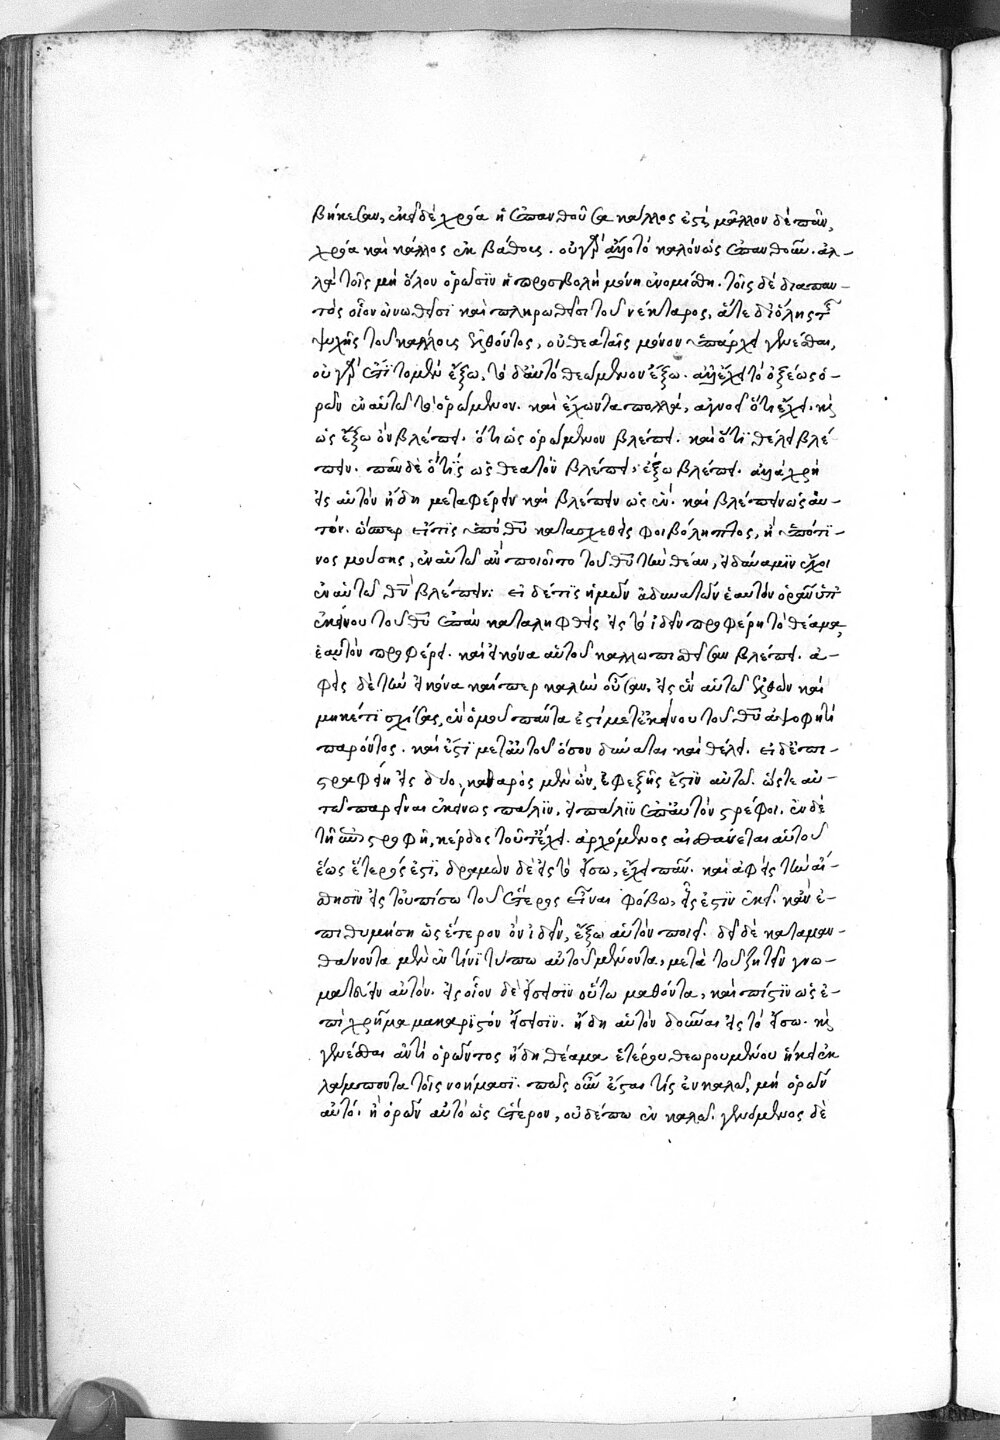 βήκεσαν, ἐκεῖ δὲ χρόα ἡ ἐπανθοῦσα κάλλος ἐστὶ μᾶλλον δὲ πᾶν,
χρόα καὶ κάλλος ἐκ βάθους. οὐ γὰρ ἄλλο τὸ καλὸν ὡς ἐπανθοῦν. ἀλ-
λὰ τοῖς μὴ ὅλον ὁρῶσιν ἡ προσβολὴ μόνη ἐνομίσθη. τοῖς δὲ διαπαν-
τὸς οἷον οἰνωθεῖσι καὶ πληρωθεῖσι τοῦ νέκταρος, ἅτε δι' ὅλης τῆς
ψυχῆς τοῦ κάλλους ἐλθόντος, οὐ θεαταῖς μόνον ὑπάρχει γενέσθαι,
οὐ γὰρ ἔτι τὸ μὲν ἔξω, τὸ δ' αὐτὸ θεώμενον ἔξω. ἀλλ' ἔχει τὸ ὀξέως ὁ-
ρῶν ἐν αὑτῷ τὸ ὁρώμενον. καὶ ἔχων τὰ πολλὰ, ἀγνοεῖ ὅτι ἔχει. καὶ
ὡς ἔξω ὂν βλέπει. ὅτι ὡς ὁρώμενον βλέπει. καὶ ὅτι θέλει βλέ
πειν. πᾶν δὲ ὅ τις ὡς θεατὸν βλέπει, ἔξω βλέπει. ἀλλὰ χρὴ
εἰς αὑτὸν ἤδη μεταφέρειν καὶ βλέπειν ὡς ἓν. καὶ βλέπειν ὡς αὑ-
τόν. ὥσπερ εἴ τις ὑπὸ θεοῦ κατασχεθεὶς φοιβόληπτος, ἢ ὑπό τι-
νος μούσης, ἐν αὑτῷ ἂν ποιοῖτο τοῦ θεοῦ τὴν θέαν, εἰ δύναμιν ἔχοι
ἐν αὑτῷ θεὸν βλέπειν. εἰ δέ τις ἡμῶν ἀδυνατῶν ἑαυτὸν ὁρᾶν ὑπ'
ἐκείνου τοῦ θεοῦ ἐπὰν καταληφθεὶς εἰς τὸ ἰδεῖν προφέρῃ τὸ θέαμα,
ἑαυτὸν προφέρει. καὶ εἰκόνα αὑτοῦ καλλωπισθεῖσαν βλέπει. ἀ-
φεὶς δὲ τὴν εἰκόνα καίπερ καλὴν οὖσαν, εἰς ἓν αὑτῷ ἐλθὼν καὶ
μηκέτι σχίσας, ἓν ὁμοῦ πάντα ἐστὶ μετ' ἐκείνου τοῦ θεοῦ ἀψοφητὶ
παρόντος. καὶ ἔστι μετ' αὐτοῦ ὅσον δύναται καὶ θέλει. εἰ δ' ἐπι-
στραφείη εἰς δύο, καθαρὸς μένων, ἐφεξῆς ἐστιν αὐτῷ. ὥστε αὐ-
τῷ παρεῖναι ἐκείνως πάλιν, εἰ πάλιν ἐπ' αὐτὸν στρέφοι. ἐν δὲ
τῇ ἐπιστροφῇ, κέρδος τοῦτ' ἔχει. ἀρχόμενος αἰσθάνεται αὑτοῦ
ἕως ἕτερός ἐστι, δραμὼν δὲ εἰς τὸ εἴσω, ἔχει πᾶν. καὶ ἀφεὶς τὴν αἴ-
σθησιν εἰς τοὐπίσω τοῦ ἕτερος εἶναι φόβῳ, εἷς ἐστιν ἐκεῖ. κἂν ἐ-
πιθυμήσῃ ὡς ἕτερον ὂν ἰδεῖν, ἔξω αὑτὸν ποιεῖ. δεῖ δὲ καταμαν-
θάνοντα μὲν ἔν τινι τύπῳ αὐτοῦ μένοντα, μετὰ τοῦ ζητεῖν γνω-
ματεύειν αὐτόν. εἰς οἷον δὲ εἴσεισιν οὕτω μαθόντα, καὶ πίστιν ὡς ἐ-
πὶ χρῆμα μακαριστὸν εἴσεισιν. ἤδη αὑτὸν δοῦναι εἰς τὸ εἴσω. καὶ
γενέσθαι ἀντὶ ὁρῶντος ἤδη θέαμα ἑτέρου θεωρουμένου ἥκει ἐκ
λάμποντα τοῖς νοήμασι. πῶς οὖν ἔσται τις ἐν καλῷ, μὴ ὁρῶν
αὐτό. ἢ ὁρῶν αὐτὸ ὡς ἕτερον, οὐδέπω ἐν καλῷ. γενόμενος δὲ